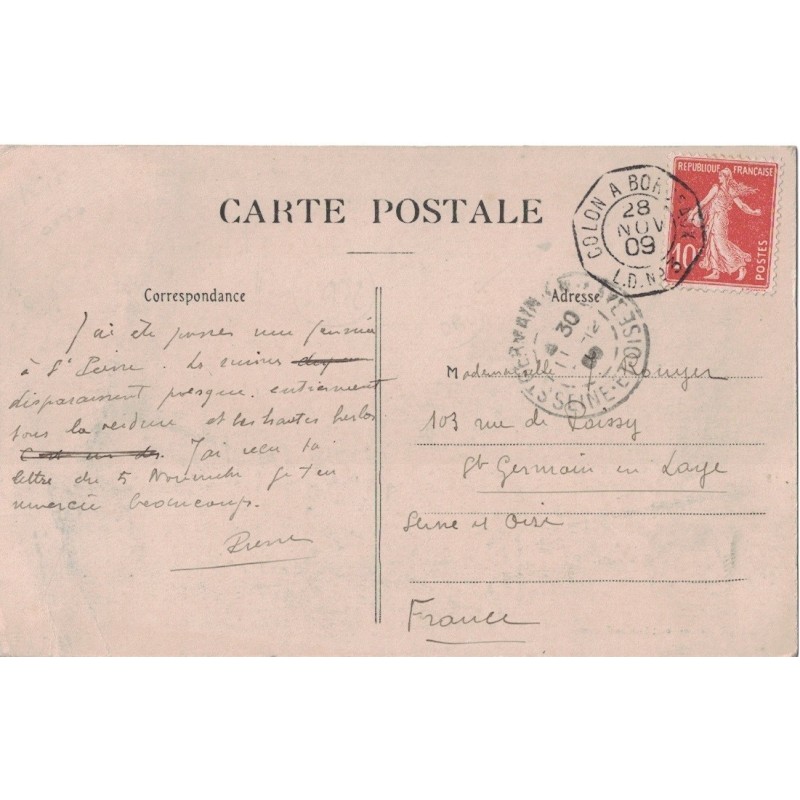 CARTE POSTALE
Correspondance
J'ai été passer une journée
à St Pierre. Les ruines
disparaissent presque entièrement
sous la verdure et les hautes herbes
J'ai reçu ta
lettre du 5 Novembre je t'en
remercie beaucoup.
Pierre
Adresse
Mademoiselle J. Rouyer
103 rue de Poissy
St Germain en Laye
Seine et Oise
France
REPUBLIQUE FRANÇAISE
10
POSTES
COLON A BORDEAUX
28
NOV
09
L.D. No
ST GERMAIN-EN-LAYE
SEINE-ET-OISE
30